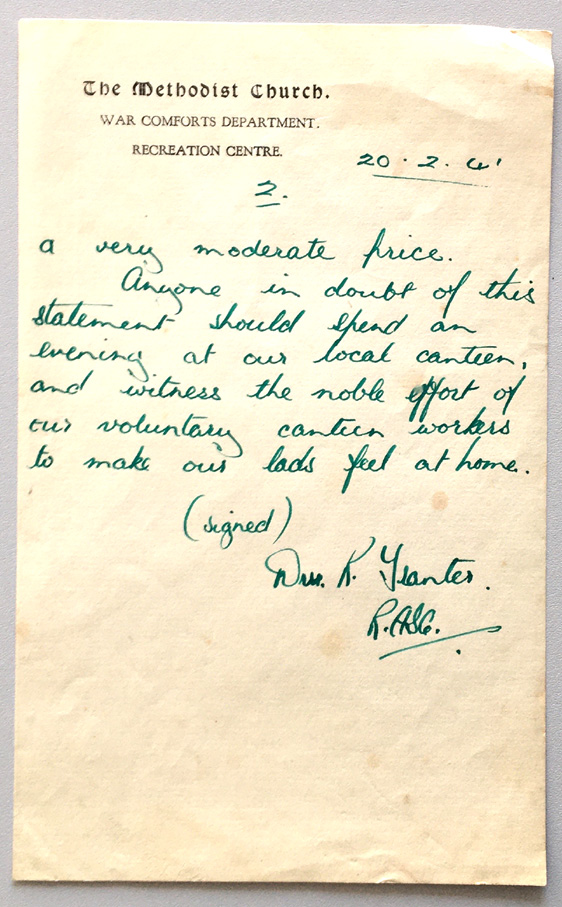 The Methodist Church.
WAR COMFORTS DEPARTMENT.
RECREATION CENTRE.
20.2.41
2.
a very moderate price.
Anyone in doubt of this
statement should spend an
evening at our local canteen,
and witness the noble effort of
our voluntary canteen workers
to make our lads feel at home.
(signed)
K.
R.A.S.C.